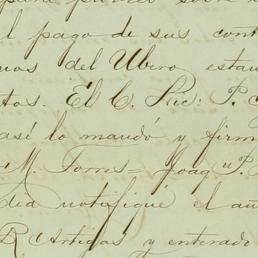 el pago de sus cont
nos del Ubero estau
tos. El C. Prec: P. C
así lo mandó y firm
M. Torres = Joaqⁿ P.
dia notifiqué el au
R Artigas y enterado